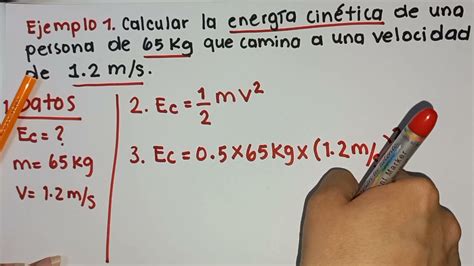 Ejemplo 1. Calcular la energía cinética de una
persona de 65 Kg que camino a una velocidad
de 1.2 m/s.
1. Datos
Ec = ?
m = 65 kg
V = 1.2 m/s
2. Ec = 1/2 m v²
3. Ec = 0.5 x 65 Kg x (1.2 m/s
Marker